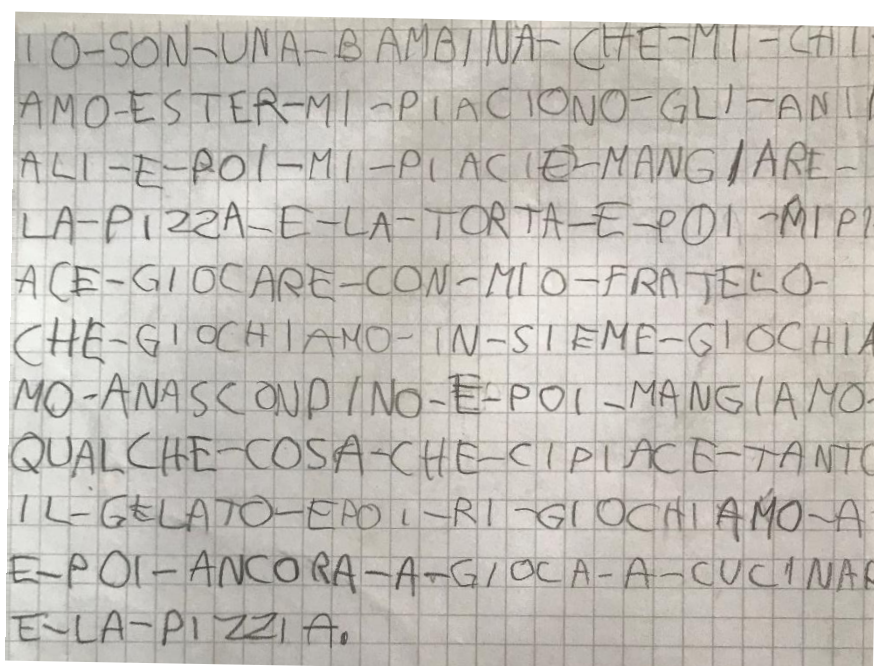 IO-SON-UNA-BAMBINA-CHE-MI-CHI
AMO-ESTER-MI-PIACIONO-GLI-ANI
ALI-E-POI-MI-PIACIE-MANGIARE-
LA-PIZZA-E-LA-TORTA-E-POI-MIPI
ACE-GIOCARE-CON-MIO-FRATELO-
CHE-GIOCHIAMO-IN-SIEME-GIOCHIA
MO-ANASCONDINO-E-POI-MANGIAMO-
QUALCHE-COSA-CHE-CIPIACE-TANTO
IL-GELATO-EPOI-RI-GIOCHIAMO-A
E-POI-ANCORA-A-GIOCA-A-CUCINAR
E-LA-PIZZIA.